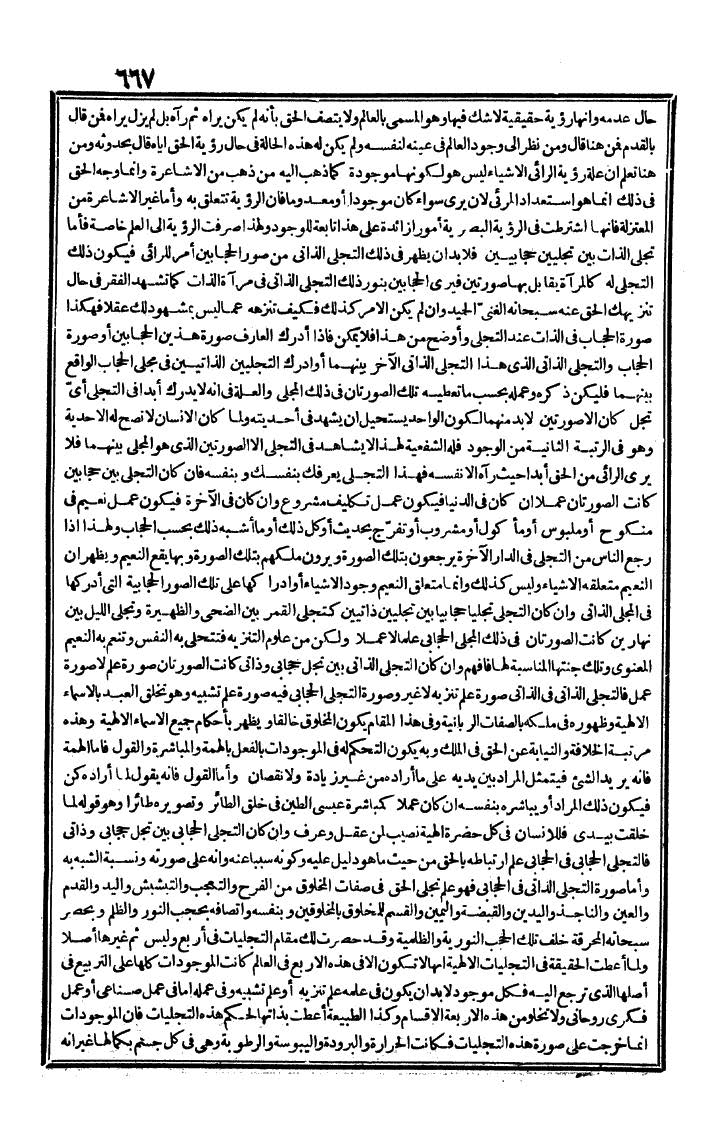 ٦٦٧
حال عدمه وانها رؤية حقيقية لاشك فيها وهو المسمى بالعالم ولا يتصف الحق بأنه لم يكن يراه ثم رآه بل لم يزل يراه فمن قال
بالقدم فمن هنا قال ومن نظر الى وجود العالم في عينه لنفسه ولم يكن له هذه الحالة في حال رؤية الحق اياه قال بحدوثه ومن
هنا تعلم ان علة رؤية الرائى الاشياء ليس هو لكونها موجودة كما ذهب اليه من ذهب من الاشاعرة وانما وجه الحق
في ذلك انما هو استعداد المرئى لان يرى سواء كان موجودا أو معدوما فان الرؤية تتعلق به وأما غير الاشاعرة من
المعتزلة فانها اشترطت في الرؤية البصرية أمورا زائدة على هذا تابعة للوجود ولهذا صرفت الرؤية الى العلم خاصة فأما
تجلى الذات بين تجليين حجابيين فلابد ان يظهر في ذلك التجلى الذاتى من صور الحجابين أمر للرائى فيكون ذلك
التجلى له كالمرآة يقابل بها صورتين فيرى الحجابين بنور ذلك التجلى الذاتى في مرآة الذات كما تشهد الفقر في حال
تنزيهك الحق عنه سبحانه الغنىّ الحميد وان لم يكن الامر كذلك فكيف تنزهه عما ليس بمشهود لك عقلا فهكذا
صورة الحجاب في الذات عند التجلى وأوضح من هذا فلا يمكن فاذا أدرك العارف صورة هذين الحجابين أو صورة
الحجاب والتجلى الذاتى الذى هذا التجلى الذاتى الآخر بينهما أو ادرك التجليين الذاتيين في مجلى الحجاب الواقع
بينهما فليكن ذكره وعمله بحسب ما تعطيه تلك الصورتان في ذلك المجلى والعلة في انه لا يدرك أبدا في التجلى أىّ
تجل كان الا صورتين لابد منهما لكون الواحد يستحيل ان يشهد في أحديته ولما كان الانسان لا تصح له الاحدية
وهو في الرتبة الثانية من الوجود فله الشفعية لهذا لا يشاهد في التجلى الا الصورتين الذى هو المجلى بينهما فلا
يرى الرائى من الحق أبدا حيث رآه الا نفسه فهذا التجلى يعرفك بنفسك وبنفسه فان كان التجلى بين حجابين
كانت الصورتان عملا ان كان في الدنيا فيكون عمل تكليف مشروع وان كان في الآخرة فيكون عمل نعيم في
منكوح أو ملبوس أو مأكول أو مشروب أو تفرّج بحديث أو كل ذلك أو ما أشبه ذلك بحسب الحجاب ولهذا اذا
رجع الناس من التجلى في الدار الآخرة يرجعون بتلك الصورة ويرون ملكهم بتلك الصورة وبها يقع النعيم ويظهر ان
النعيم متعلقه الاشياء وليس كذلك وانما متعلق النعيم وجود الاشياء أو ادراكها على تلك الصور الحجابية التى أدركها
في المجلى الذاتى وان كان التجلى تجليا حجابيا بين تجليين ذاتيين كتجلى القمر بين الضحى والظهيرة وتجلى الليل بين
نهارين كانت الصورتان في ذلك المجلى الحجابى علما لا عملا ولكن من علوم التنزيه فتتحلى به النفس وتنعم به النعيم
المعنوى وتلك جنتها المناسبة لها فافهم وان كان التجلى الذاتى بين تجل حجابى وذاتى كانت الصورتان صورة علم لا صورة
عمل فالتجلى الذاتى في الذاتى صورة علم تنزيه لا غير وصورة التجلى الحجابى فيه صورة علم تشبيه وهو تخلق العبد بالاسماء
الالهية وظهوره في ملكه بالصفات الربانية وفي هذا المقام يكون المخلوق خالقا ويظهر بأحكام جميع الاسماء الالهية وهذه
مرتبة الخلافة والنيابة عن الحق في الملك وبه يكون التحكم له في الموجودات بالفعل بالهمة والمباشرة والقول فاما الهمة
فانه يريد الشئ فيتمثل المراد بين يديه على ما أراده من غير زيادة ولا نقصان وأما القول فانه يقول لما أراده كن
فيكون ذلك المراد أو يباشره بنفسه ان كان عملا كمباشرة عيسى الطين في خلق الطائر وتصويره طائرا وهو قوله لما
خلقت بيدى فللانسان في كل حضرة الهية نصيب لمن عقل وعرف وان كان التجلى الحجابى بين تجل حجابى وذاتى
فالتجلى الحجابى في الحجابى علم ارتباطه بالحق من حيث ما هو دليل عليه وكونه سببا عنه وانه على صورته ونسبة الشبه به
وأما صورة التجلى الذاتى في الحجابى فهو علم تجلى الحق في صفات المخلوق من الفرح والتعجب والتبشبش واليد والقدم
والعين والناجذ واليدين والقبضة واليمين والقسم للمخلوق بالمخلوقين وبنفسه واتصافه بحجب النور والظلم وبحصر
سبحانه المحرقة خلف تلك الحجب النورية والظلمية وقد حصرت لك مقام التجليات في أربع وليس ثم غيرها أصلا
ولما أعطت الحقيقة في التجليات الالهية انها لا تكون الا في هذه الاربع في العالم كانت الموجودات كلها على التربيع في
أصلها الذى ترجع اليه فكل موجود لابد ان يكون في علمه علم تنزيه أو علم تشبيه وفي عمله اما في عمل صناعى أو عمل
فكرى روحانى ولا تخلو من هذه الاربعة الاقسام وكذا الطبيعة أعطت بذاتها لحكم هذه التجليات فان الموجودات
انما خرجت على صورة هذه التجليات فكانت الحرارة والبرودة واليبوسة والرطوبة وهى في كل جسم بكمالها غير انه